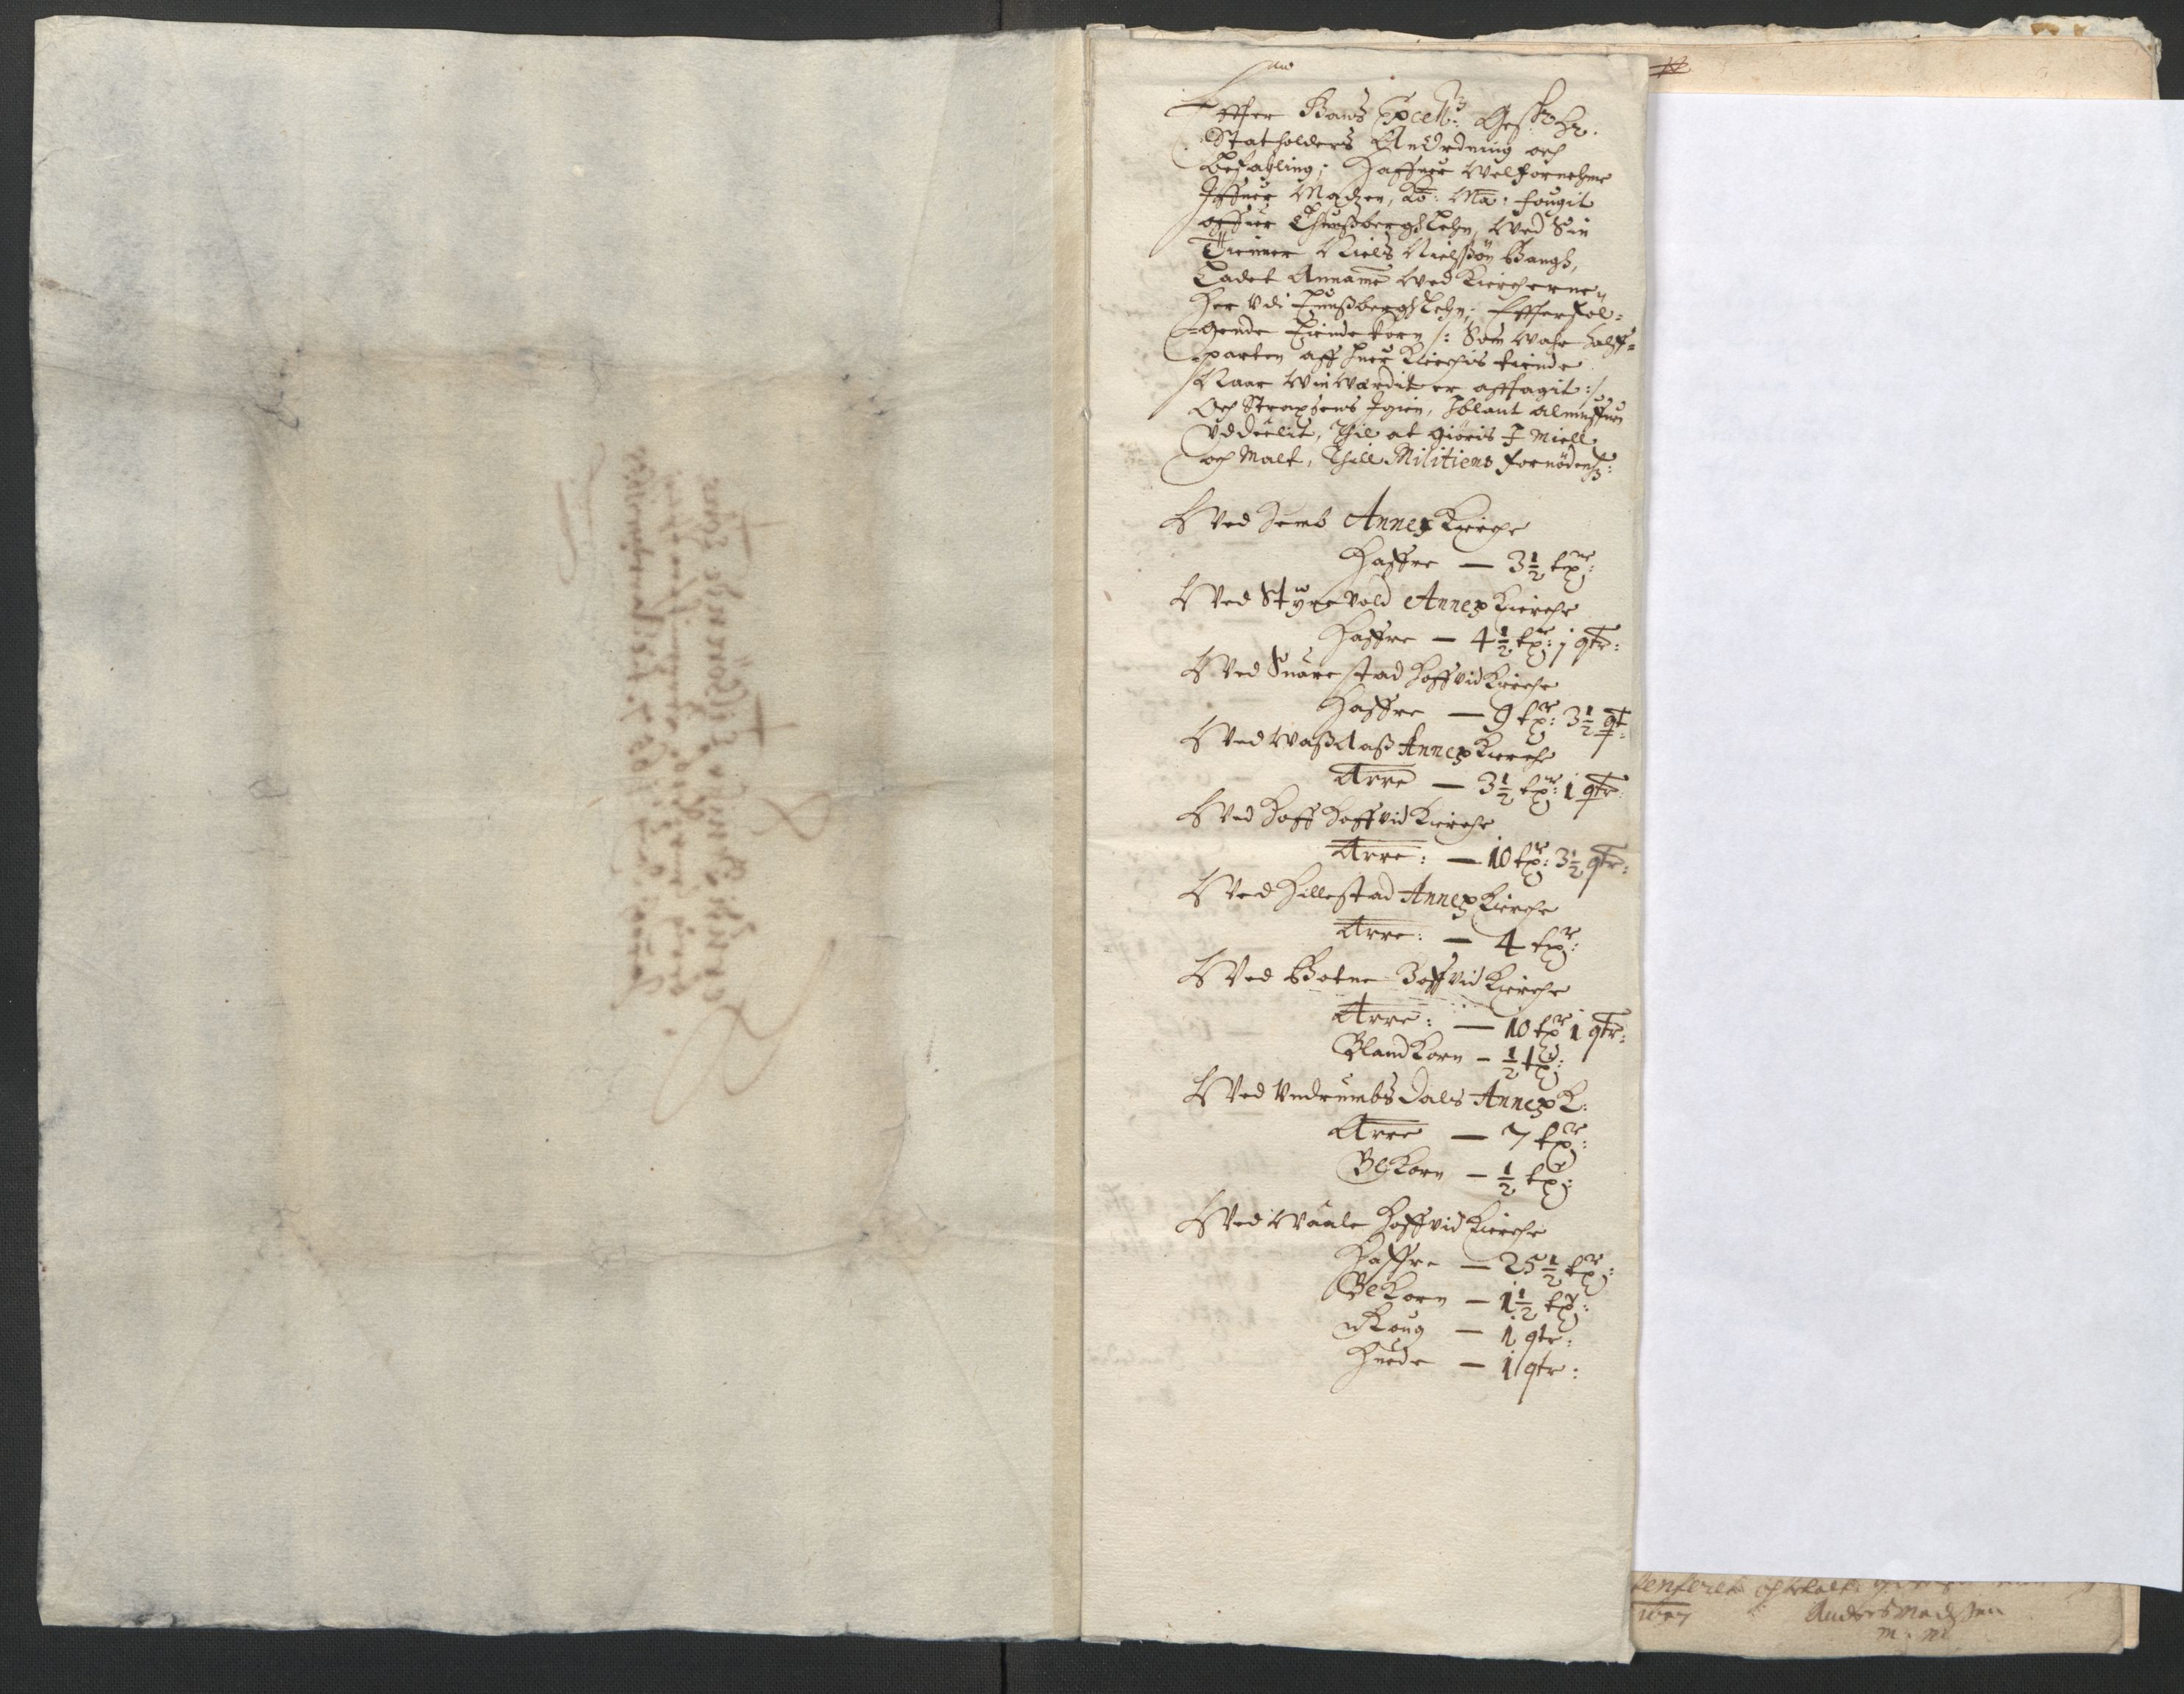 Effter Hans Excell: Gest: Hr:
Statholders Anordning och
Befahling; Haffuer Welfornehme
Iffuer Madzen, Ko: Ma: fougit
offuer Thunßbergs Lehn, Wed Sin
Thienner Niels Nielssøn Bangh,
Ladet Anname Wed Kiercherne
Her Vdi Tunßbergs Lehn; Effterføl-
-gende Tiende korn /: Som Wahr halff-
-parten aff huer Kierchis tiende
Naar Winwærdit er afftagit :/
Och Straxsens Igien, Iblant almuffuen
Vddeelit, Thil at giøris I Miell
och Malt, Thill Militiens fornødenhz:
Wed Semb Annex Kierche
Haffre — 3½ txr:
Wed Styrevold Annex Kierche
Haffre — 4½ txr: j qtr:
Wed Snarestad Hoffvid Kierche
Haffre — 9 txr: 3½ qt:
Wed Waßaaß Annex Kierche
Arre — 3½ txr: 1 qtr:
Wed Hoff Hoffvid Kierche
Arre: — 10 txr: 3½ qtr:
Wed Hillestad Annex Kierche
Arre: — 4 txr:
Wed Botne Hoffvid Kierche
Arre: — 10 txr 1 qtr:
Bland Korn — ½ tx:
Wed Vndrumbs Dals Annex K:
Arre — 7 txr:
Bl Korn — ½ tx:
Wed Waale Hoffvid Kierche
Haffre — 25½ txr:
Bl Korn — 1½ tx:
Roug — 1 qtr:
Huede — 1 qtr:
Anders Madssen
m: m